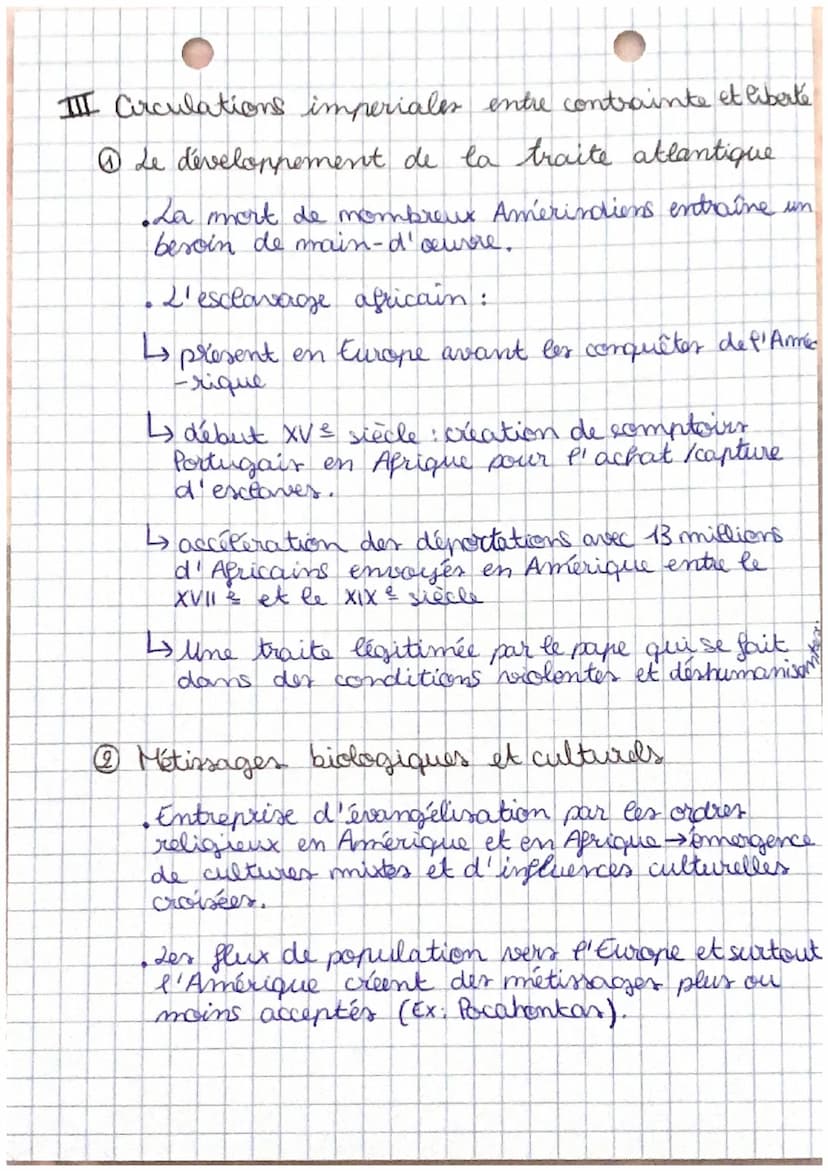 III Circulations imperiales entre contrainte et liberté
① Le développement de la traite atlantique
. La mort de nombreux Amérindiens entraîne un
besoin de main-d'œuvre.
. L'esclavage africain :
↳ présent en Europe avant les conquêtes de l'Amé
-rique
↳ début XVe siècle : création de comptoirs
Portugais en Afrique pour l'achat /capture
d'esclaves.
↳ accélération des déportations avec 13 millions
d'Africains envoyés en Amérique entre le
XVIIe et le XIXe siècle
↳ Une traite légitimée par le pape qui se fait
dans des conditions violentes et déshumanisantes.
② Métissages biologiques et culturels
. Entreprise d'évangélisation par les ordres
religieux en Amérique et en Afrique → émergence
de cultures mixtes et d'influences culturelles
croisées.
. Les flux de population vers l'Europe et surtout
l'Amérique créent des métissages plus ou
moins acceptés (Ex: Pocahontas).